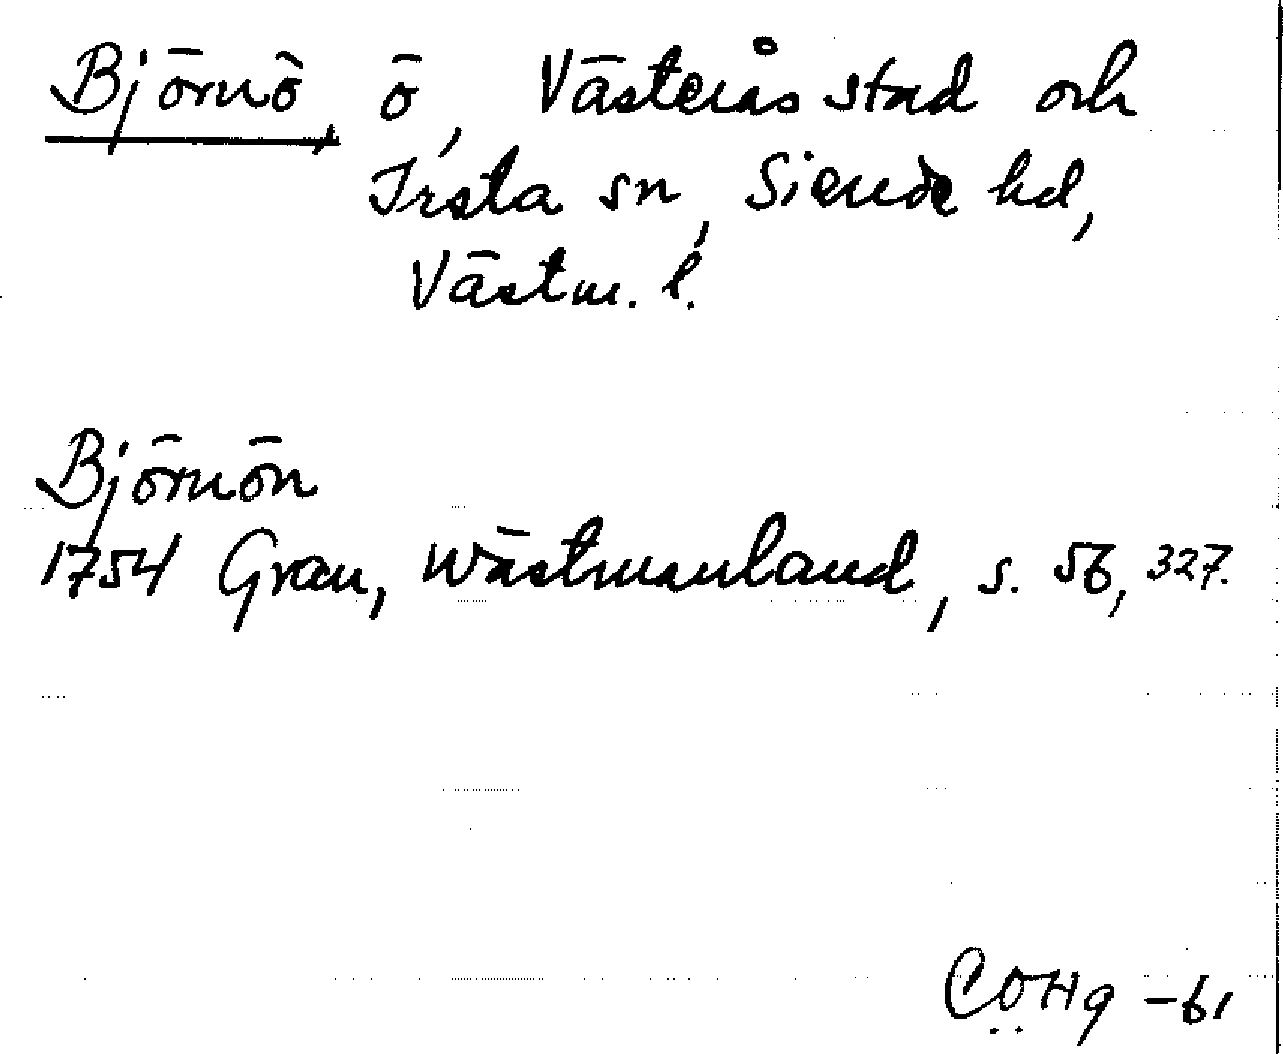 Björnö, ö, Västerås stad och
Irsta sn, Siende hd,
Västm. l.
Björnön
1754 Grau, Wästmanland, s. 56, 327.
-61